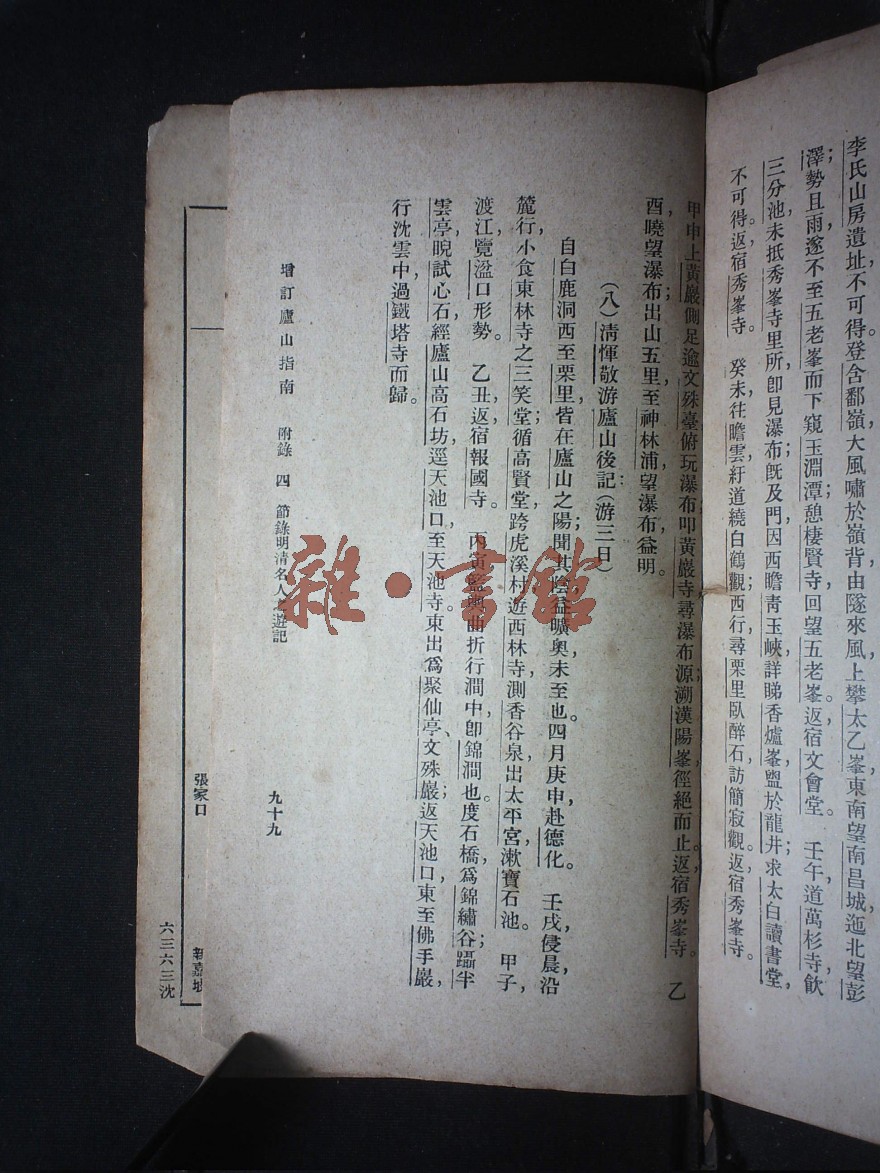 李氏山房遺址，不可得。登含鄱嶺，大風嘯於嶺背，由隧來風。上攀太乙峯，東南望南昌城，迤北望彭
澤；勢且雨，遂不至五老峯而下。窺玉淵潭，憩棲賢寺，回望五老峯。返宿文會堂。　壬午，道萬杉寺，飲
三分池。未抵秀峯寺里所，卽見瀑布；旣及門，因西瞻靑玉峽，詳睇香爐峯，盥於龍井；求太白讀書堂，
不可得。返宿秀峯寺。　癸未，往瞻雲，紆道繞白鶴觀，西行尋栗里，臥醉石；訪簡寂觀。返宿秀峯寺。
甲申，上黃巖，側足逾文殊臺，俯玩瀑布；叩黃巖寺，尋瀑布源；溯漢陽峯，徑絕而止。返宿秀峯寺。　乙
酉，曉望瀑布；出山五里，至神林浦，望瀑布益明。
（八）清惲敬游廬山後記（游三日）
自白鹿洞西至栗里，皆在廬山之陽；聞其陰益曠奧，未至也。四月庚申，赴德化。　壬戌，侵晨，沿
麓行，小食東林寺之三笑堂；循高賢堂，跨虎溪村，遊西林寺；測香谷泉，出太平宮，漱寶石池。　甲子，
渡江，覽湓口形勢。　乙丑，返宿報國寺。　丙寅，籃輿曲折行澗中，卽錦澗也。度石橋，爲錦繡谷；躡半
雲亭，睨試心石，經廬山高石坊，逕天池口，至天池寺。東出爲聚仙亭、文殊巖；返天池口，東至佛手巖，
行沈雲中，過鐵塔寺而歸。
增訂廬山指南　附錄　四　節錄明清名人之遊記
九十九
張家口
新嘉坡
六三六三沈
雜·書館